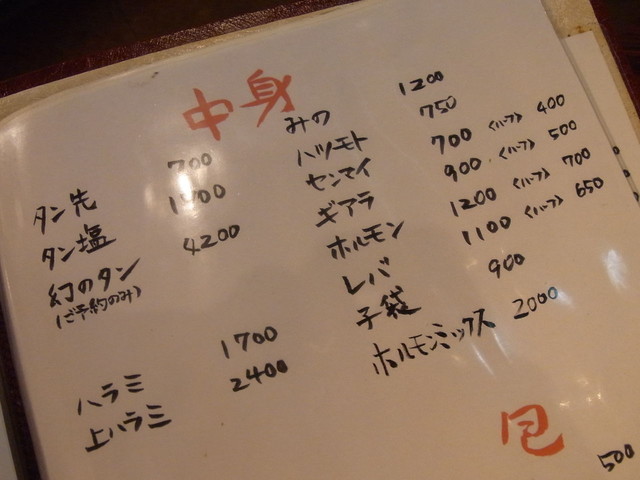 中身
タン先 700
タン塩
幻のタン 4200
(ご予約のみ)
ハラミ 1700
上ハラミ 2400
みの 1200
ハツモト 750
センマイ 700 〈ハーフ〉 400
ギアラ 900 〈ハーフ〉 500
ホルモン 1200 〈ハーフ〉 700
レバ 1100 〈ハーフ〉 650
子袋 900
ホルモンミックス 2000
500